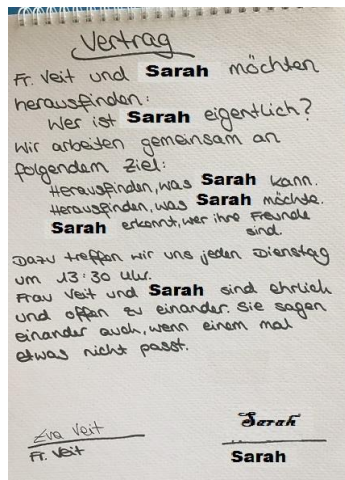 Vertrag
Fr. Veit und Sarah möchten
herausfinden:
Wer ist Sarah eigentlich?
Wir arbeiten gemeinsam an
folgendem Ziel:
Herausfinden, was Sarah kann.
Herausfinden, was Sarah möchte.
Sarah erkennt, wer ihre Freunde
sind.
Dazu treffen wir uns jeden Dienstag
um 13:30 Uhr.
Frau Veit und Sarah sind ehrlich
und offen zu einander. Sie sagen
einander auch, wenn einem mal
etwas nicht passt.
Eva Veit Sarah
Fr. Veit Sarah